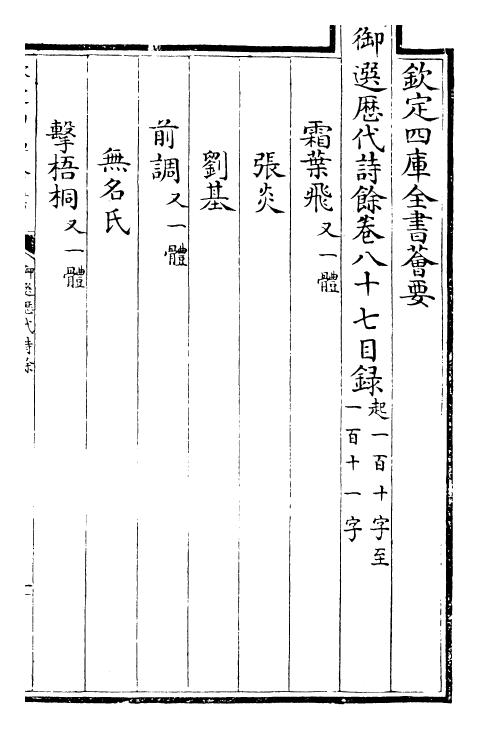 欽定四庫全書薈要
御選歷代詩餘卷八十七目録起一百十字至一百十一字
霜葉飛又一體
張炎
劉基
前調又一體
無名氏
擊梧桐又一體
御選歷代詩餘